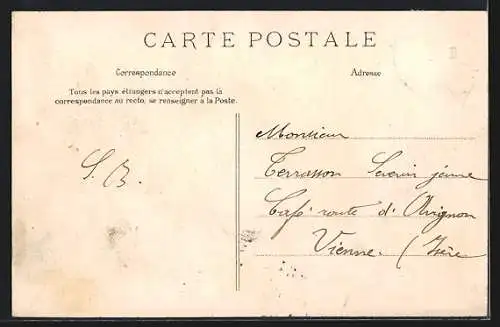 CARTE POSTALE
Correspondance
Adresse
Tous les pays étrangers n'acceptent pas la
correspondance au recto, se renseigner à la Poste.
Monsieur
Terrasson Severin jeune
S. B.
Café route d'Avignon
Vienne. (Isère